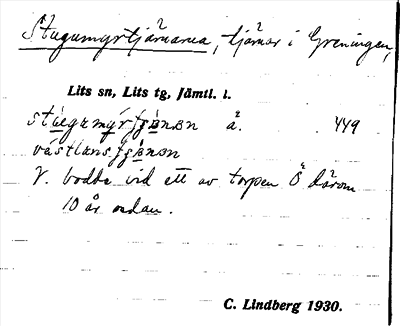 Stugumyrtjärnarna, tjärnar i Greningen,
Lits sn, Lits tg, Jämtl. l.
å. 449
V. bodde vid ett av torpen Ö därom
10 år sedan.
C. Lindberg 1930.